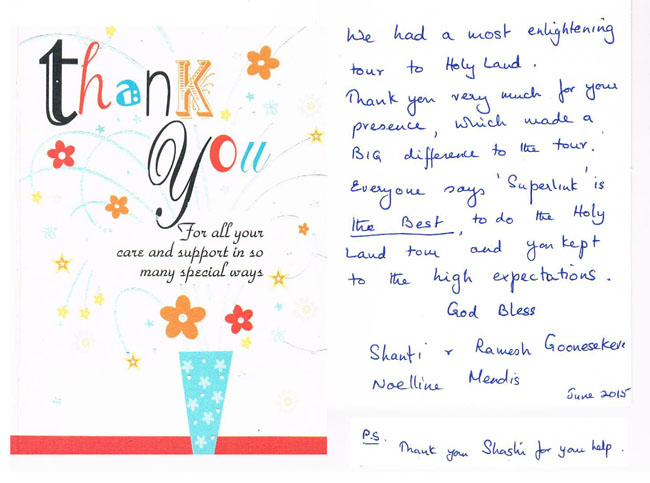 thank
you
For all your
care and support in so
many special ways
We had a most enlightening
tour to Holy Land.
Thank you very much for your
presence, which made a
BIG difference to the tour.
Everyone says 'Superlink' is
the Best, to do the Holy
Land tour and you kept
to the high expectations.
God Bless
Shanti & Ramesh Goonesekere
Noelline Mendis
June 2015
P.S. Thank you Shashi for your help.